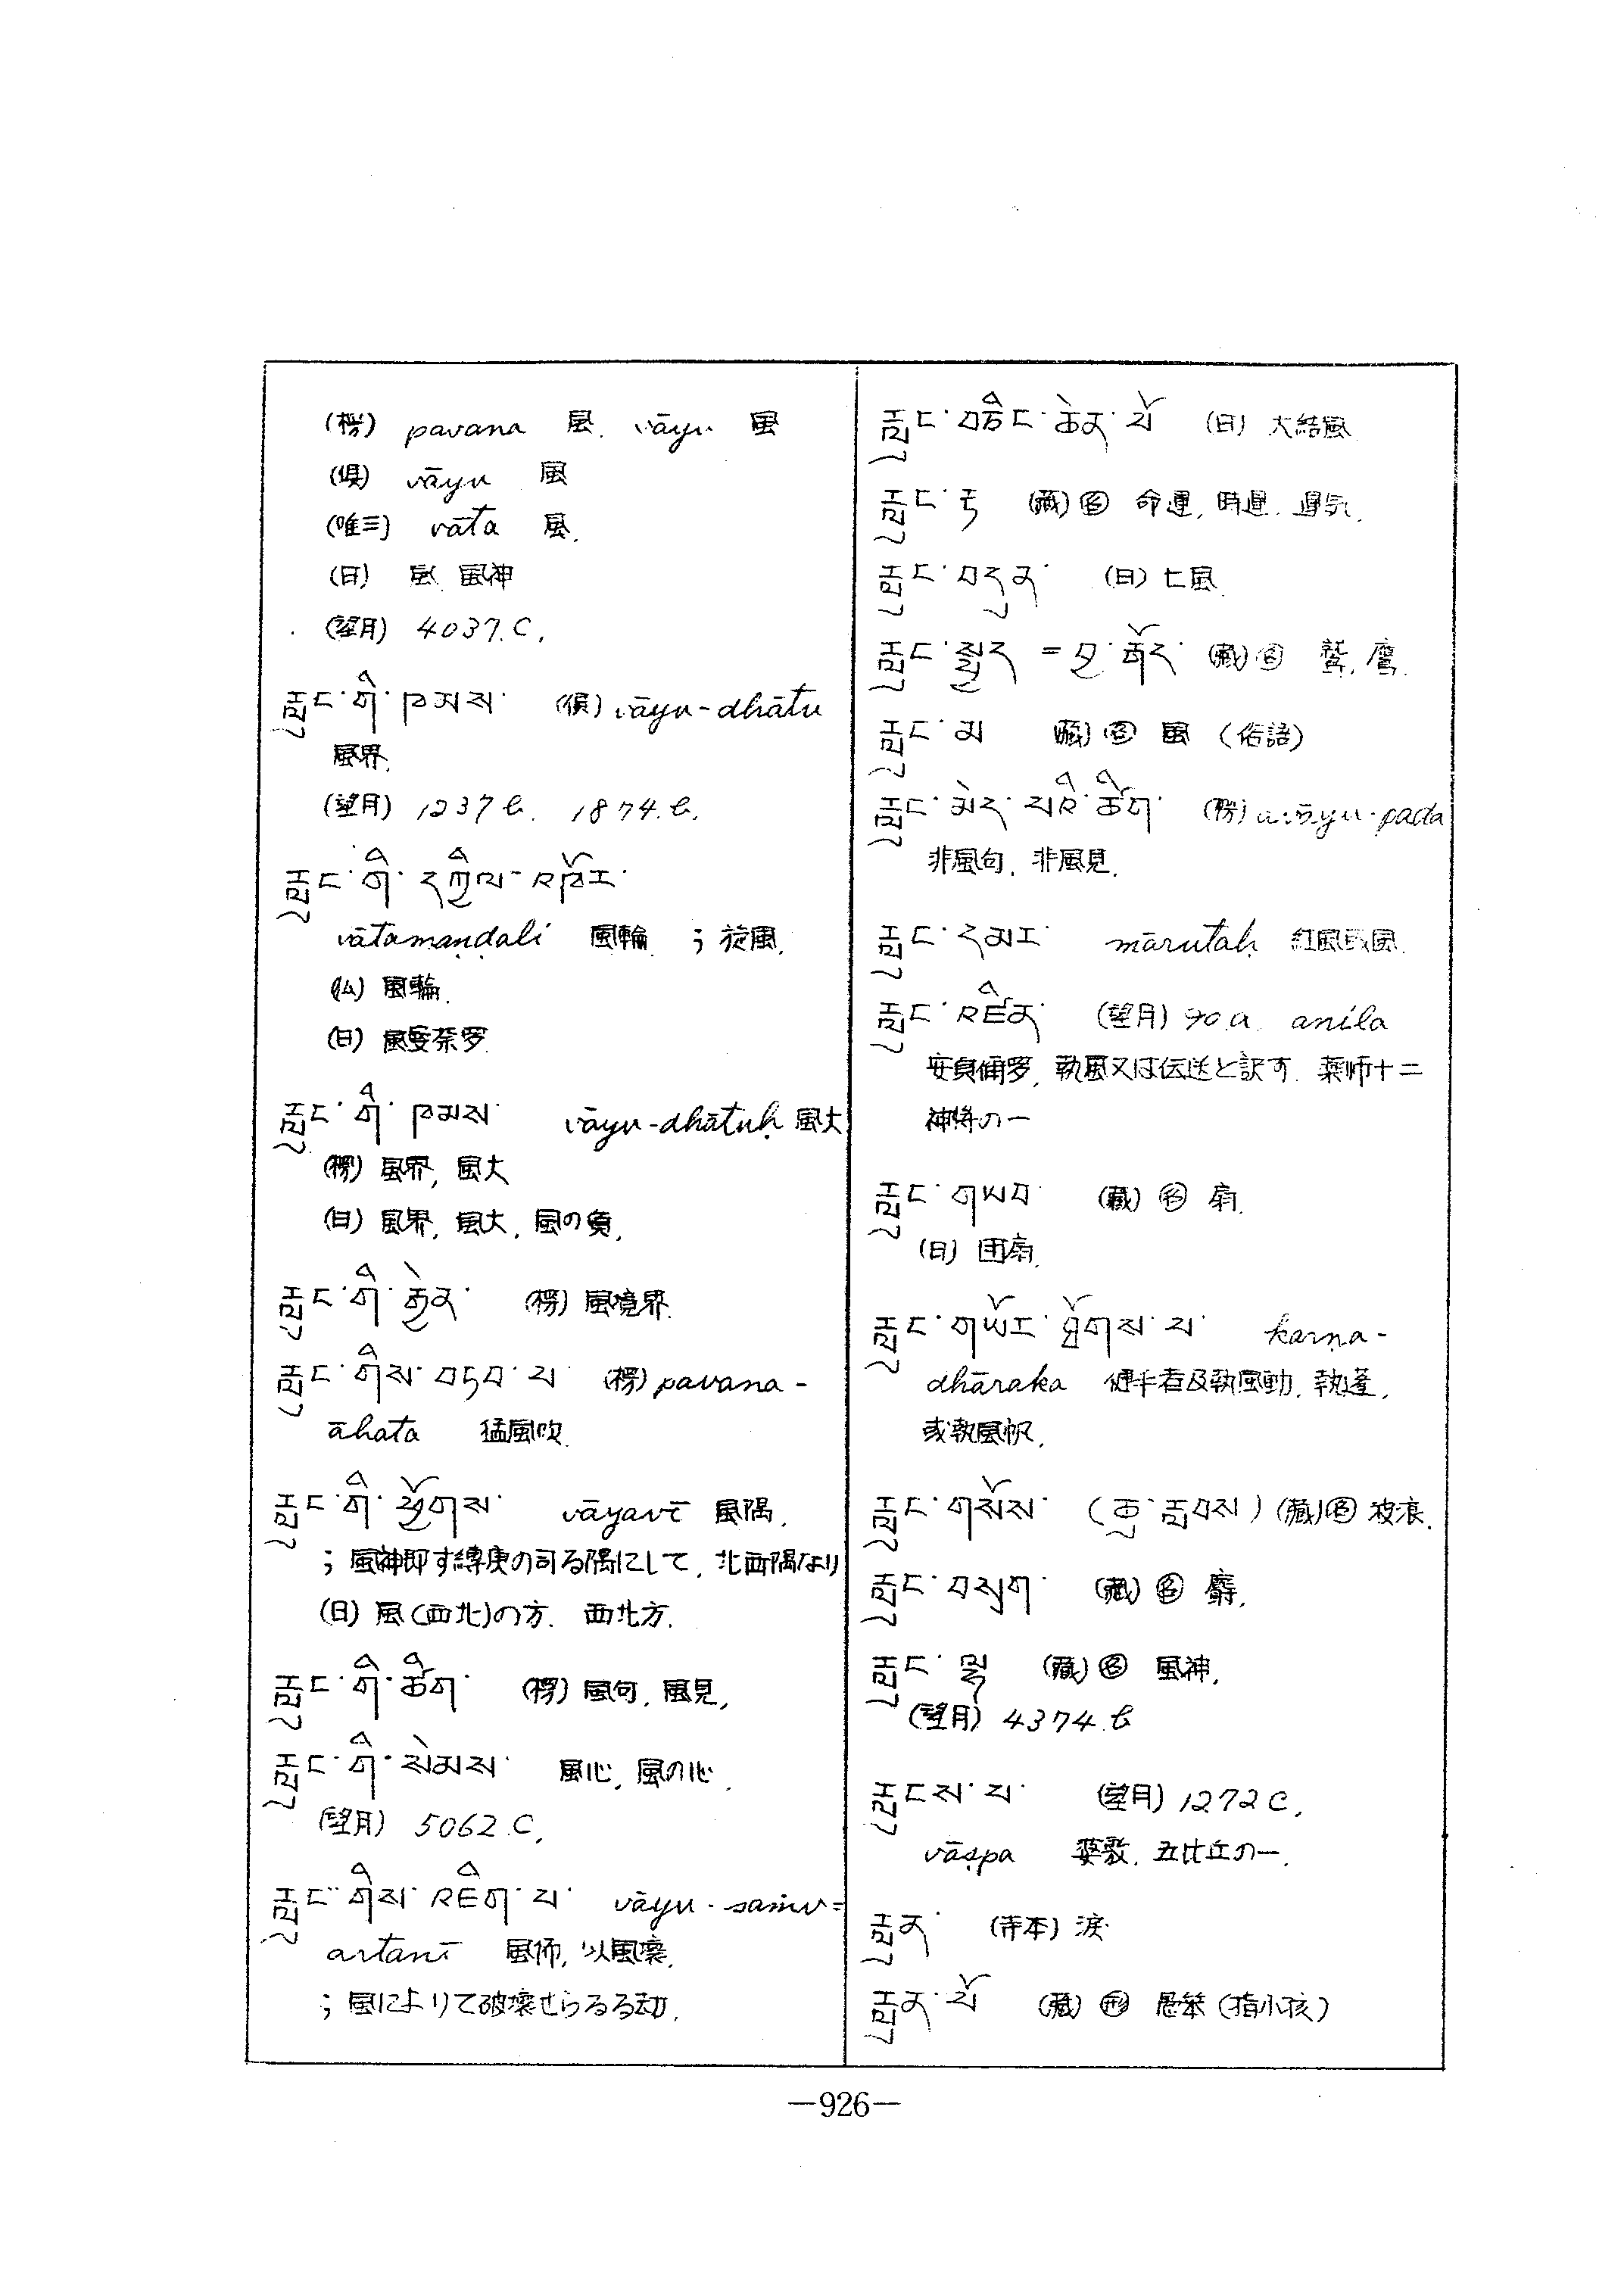 (楞) pavana 風. vāyu 風
(倶) vāyu 風
(唯三) vāta 風.
(日) 風 風神
(望月) 4037. C.
རླུང་གི་ཁམས་ (倶) vāyu-dhātu
風界.
(望月) 1237 b. 1874. b.
རླུང་གི་དཀྱིལ་འཁོར་
vātamaṇḍali 風輪 ; 旋風.
(仏) 風輪.
(日) 風曼荼罗.
རླུང་གི་ཁམས་ vāyu-dhātuḥ 風大
(楞) 風界, 風大
(日) 風界, 風大, 風の質.
རླུང་གི་རྒྱེན་ (楞) 風境界.
རླུང་གིས་བཏབ་པ་ (楞) pavana-
āhata 猛風吹.
རླུང་གི་ཕྱོགས་ vāyavī 風隅.
; 風神即す縛庚の司る隅にして, 北西隅なり
(日) 風(西北)の方. 西北方.
རླུང་གི་ཚིག་ (楞) 風句, 風見,
རླུང་གི་སེམས་ 風心, 風の心.
(望月) 5062. C,
རླུང་གིས་འཇིག་པ་ vāyu-saṁv=
artanī 風怖, 以風壊.
; 風によりて破壊せらるる劫.
རླུང་བཅིང་ཆེན་པོ (日) 大結風
རླུང་རྟ (蔵) 名 命運, 時運. 運気.
རླུང་བདུན་ (日) 七風.
རླུང་སྦྱོར = བྱ་རྒོད་ (蔵) 名 鷲, 鷹.
རླུང་མ (蔵) 名 風 (俗語)
རླུང་མེད་པའི་ཚིག་ (楞) avāyu-pada
非風句, 非風見.
རླུང་དམར་ mārutaḥ 紅風或風.
རླུང་འཛིན་ (望月) 90. a. anila
安貞備罗, 執風又は伝送と訳す. 薬师十二
神将の一
རླུང་གཡབ་ (蔵) 名 扇.
(日) 団扇.
རླུང་གཡོར་ཐོགས་པ་ karṇa-
dhāraka 健半者及執風動, 執蓬,
或執風帆.
རླུང་གསོས་ (ཆུ་རླབས) (蔵) 名 波浪.
རླུང་བསུག་ (蔵) 名 麝.
རླུང་ལྷ (蔵) 名 風神.
(望月) 4374. b
རླངས་པ་ (望月) 1272 C,
vāṣpa 婆敷. 五比丘の一.
རླན་ (寺本) 涙
རླུན་པོ (蔵) 形 愚笨 (指小孩)
—926—